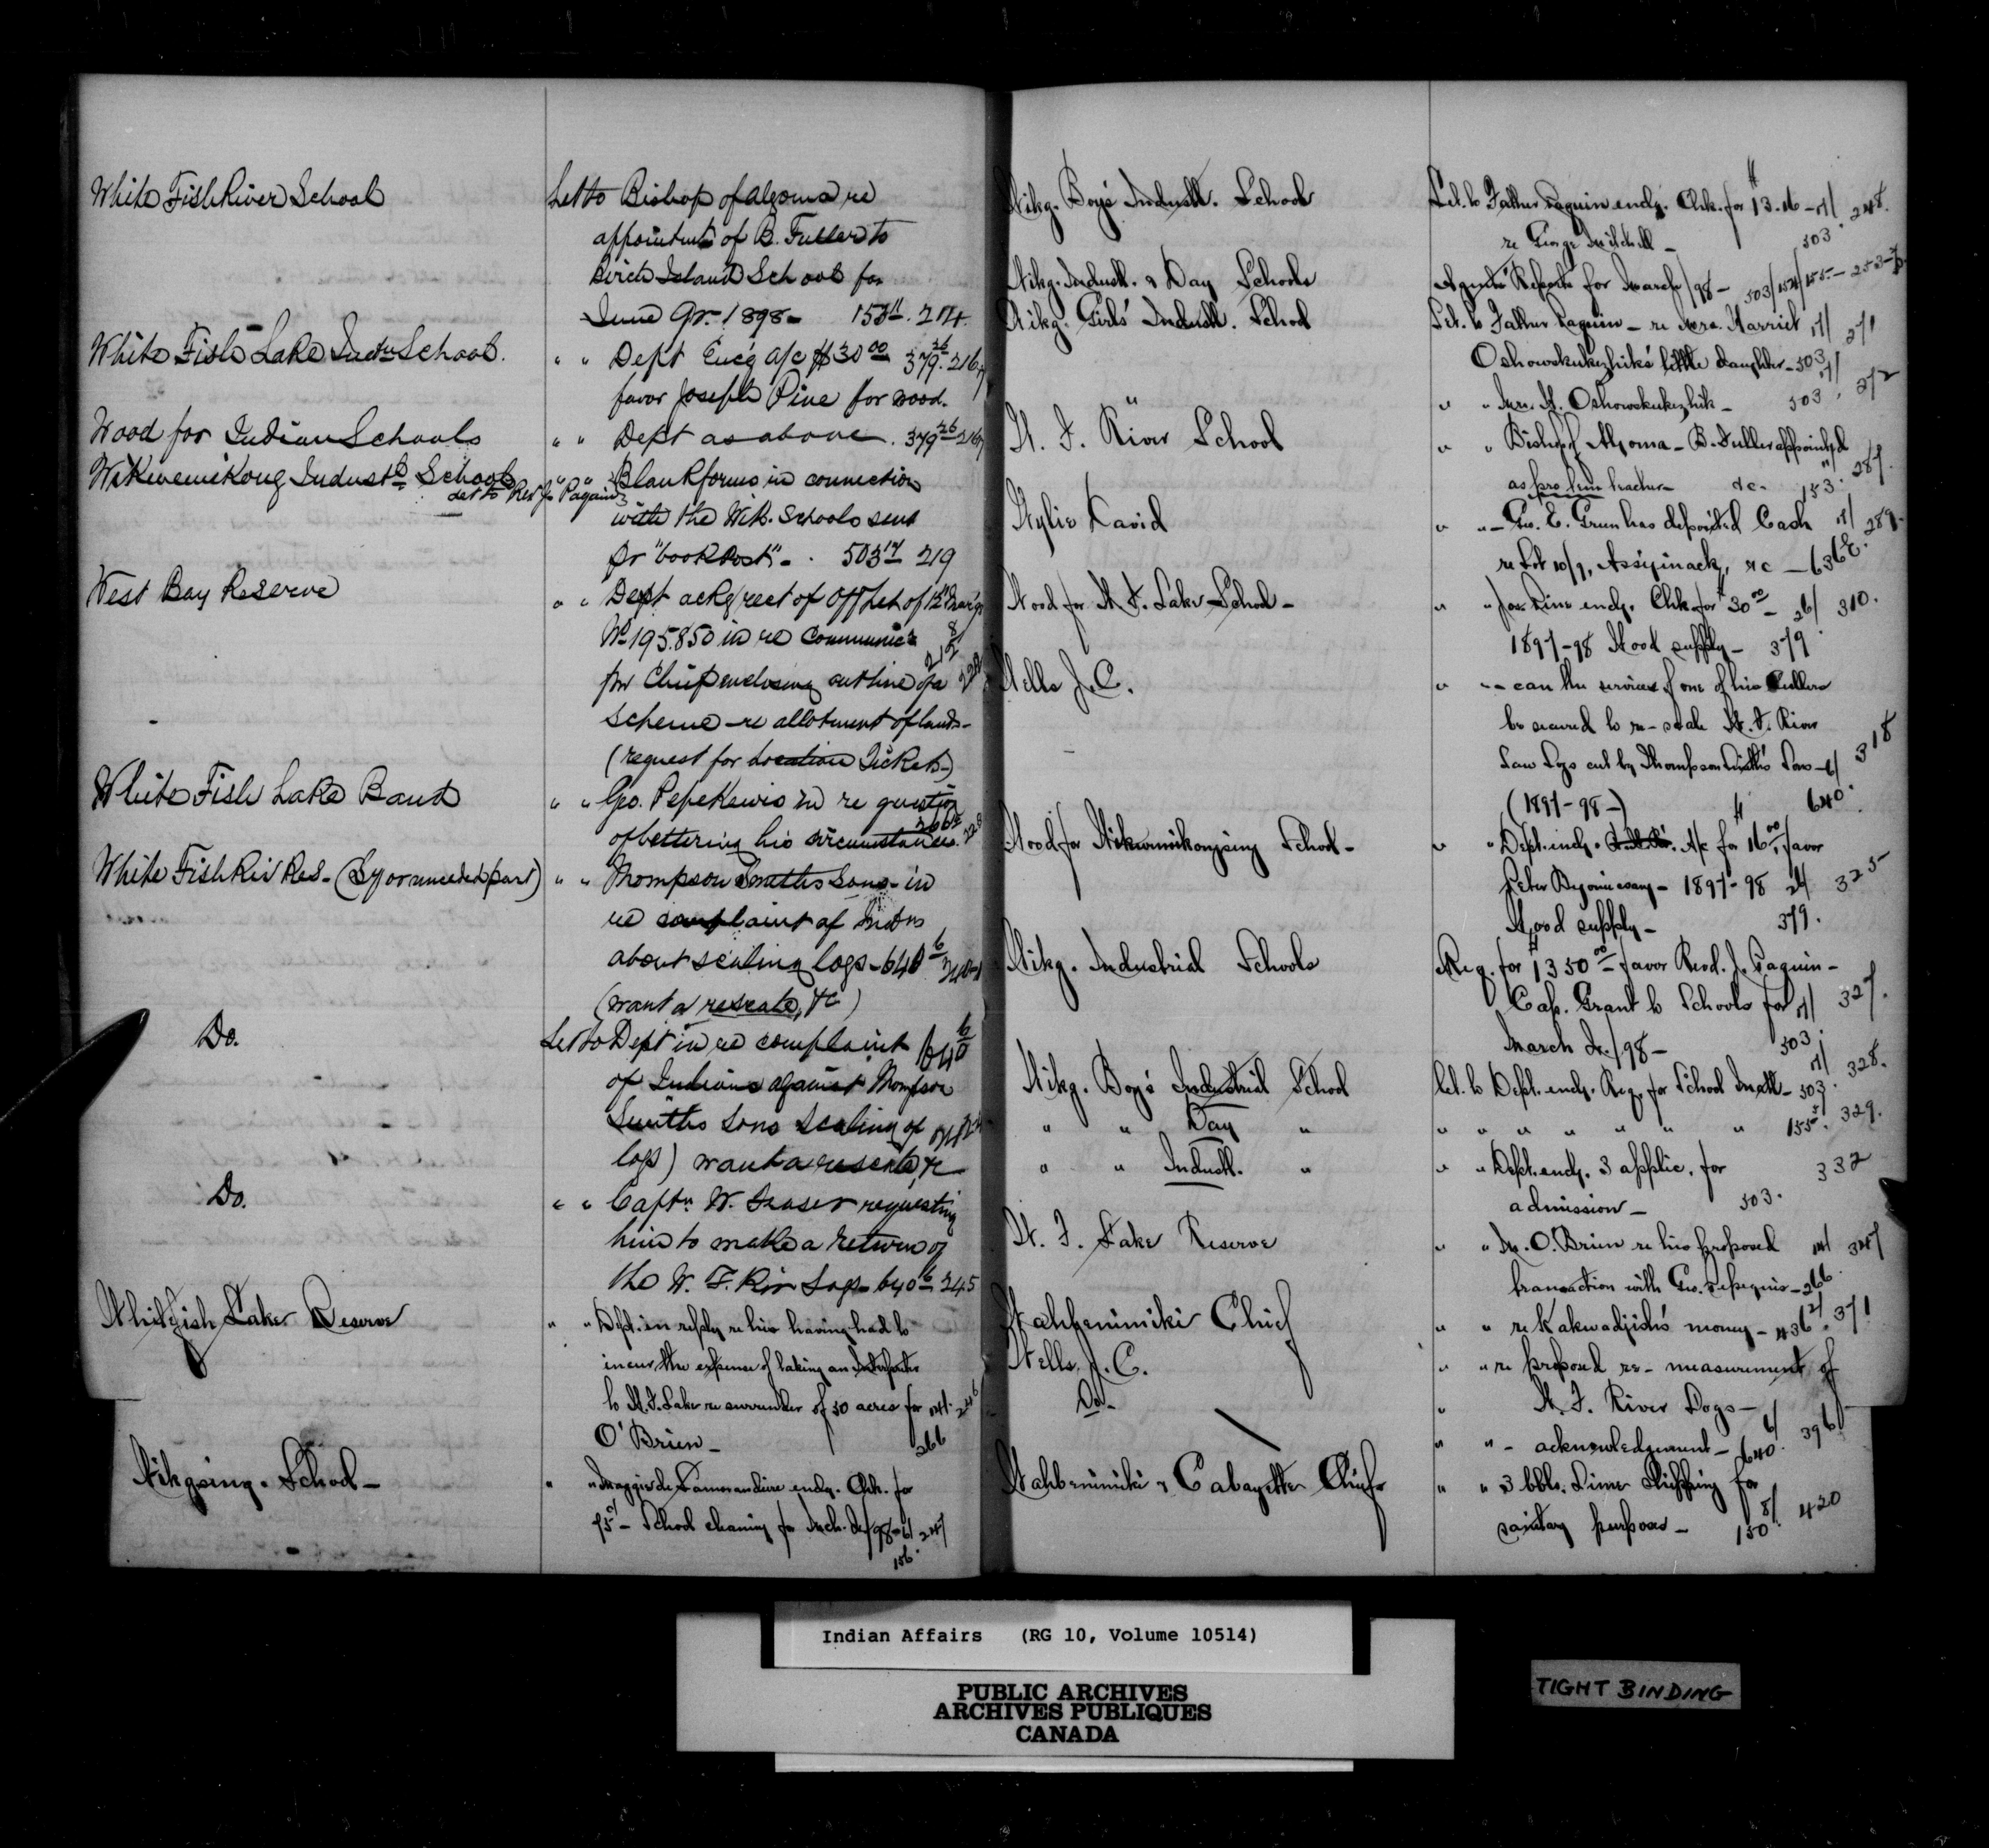 White Fish River School
Let to Bishop of Algoma re
appointmt of B. Fuller to
Birch Island School for
June Qr. 1898 - 153 11. 214.
White Fish Lake Indn School.
" " Dept Enc'g a/c $30 00 379 26. 216
favor Joseph Pine for wood.
Wood for Indian Schools
" " Dept as above. 379 26 216
Wikwemikong Industl Schools
Let to Rev J. Paquin
" " Blank forms in connection
with the Wik. Schools sent
pr "book post" - 503 17 219
West Bay Reserve
" " Dept ackg rect of Off Let of 12th
No 195.850 in re communicn
frm Chief enclosing outline of a
scheme - re allotment of lands -
(request for Location Tickets -)
White Fish Lake Band
" " Geo. Pepekewis in re question
of bettering his circumstances.
White Fish Riv Res - (Sy or unceded part)
" " Thompson Smiths Sons - in
re complaint of Indns
about scaling logs - 640 6
(want a rescale, &c)
Do.
Let to Dept in re complaint 640 6
of Indians against Thompson
Smiths Sons scaling of
logs) want a rescale, &c
Do.
" " Captn W. Fraser requesting
him to make a return of
the W. F. Riv Logs - 640 6 245
Whitefish Lake Reserve
" " Dept. in reply re his having had to
incur the expense of taking an Interpreter
to W. F. Lake re surrender of 50 acres for
O'Brien - 266
Wikgsing. School -
" " Maggie de Lamorandiere encg. Chk. for
School cleaning for Mch. Qr/98 - 247
156.
Wikg. Boys Industl. School
Let. to Father Paquin encg. Chk. for $13.16 - 17/ 248.
re George Mitchell - 503.
Wikg. Industl. & Day Schools
Agents' Reports for March/98 - 503/154/155 -
Wikg. Girls' Industl. School
Let. to Father Paquin - re Mrs. Harriet 17/ 271
Oshowskukezhik's little daughter - 503
" " Mrs. H. Oshowskukezhik - 503. 17/ 272
W. F. River School
" " Bishop of Algoma - B. Fuller appointed
as pro tem teacher - &c - 153. 11/ 287.
Wylie David
" " - Geo. E. Green has deposited Cash 17/ 289.
re Lot 10/9, Assiginack, &c - 636
Wood for W. F. Lake School -
" " Jos. Pine encg. Chk. for $30 00 - 26/ 310.
1897-98 Wood supply - 379.
Wells J. C.
" " - can the services of one of his Cullers
be secured to re-scale W. F. River
Saw Logs cut by Thompson Smith's Sons - 6/ 318
(1897-98 -) 640.
Wood for Wikwemikongsing School -
" " Dept. encg. A/c for $16 00, favor
Peter - 1897-98 26/ 325
Wood supply - 379.
Wikg. Industrial Schools
Req. for $1350 00 - favor Revd. J. Paquin -
Cap. Grant to Schools for 17/ 327.
March Qr./98 - 503.
Wikg. Boys Industrial School
Let. to Dept. encg. Req. for School Matl - 503. 17/ 328.
" " Day "
" " " " " " " 155. 329.
" " Industl. "
" " Dept. encg. 3 applic. for 332
admission - 503.
W. F. Lake Reserve
" " M. O'Brien re his proposed 14/ 347
transaction with Geo. Pepequis - 266
Wahbenimiki Chief
" " re Kakewadjish's money - 436. 371
Wells, J. C.
" " re proposed re-measurement of
Do. " W. F. River Logs -
" " - acknowledgement - 640. 6/ 396
Wahbenimiki & Cabayette Chiefs
" " 3 bbls. Lime Shipping for
sanitary purposes - 150 8/. 420
Indian Affairs (RG 10, Volume 10514)
PUBLIC ARCHIVES
ARCHIVES PUBLIQUES
CANADA
TIGHT BINDING